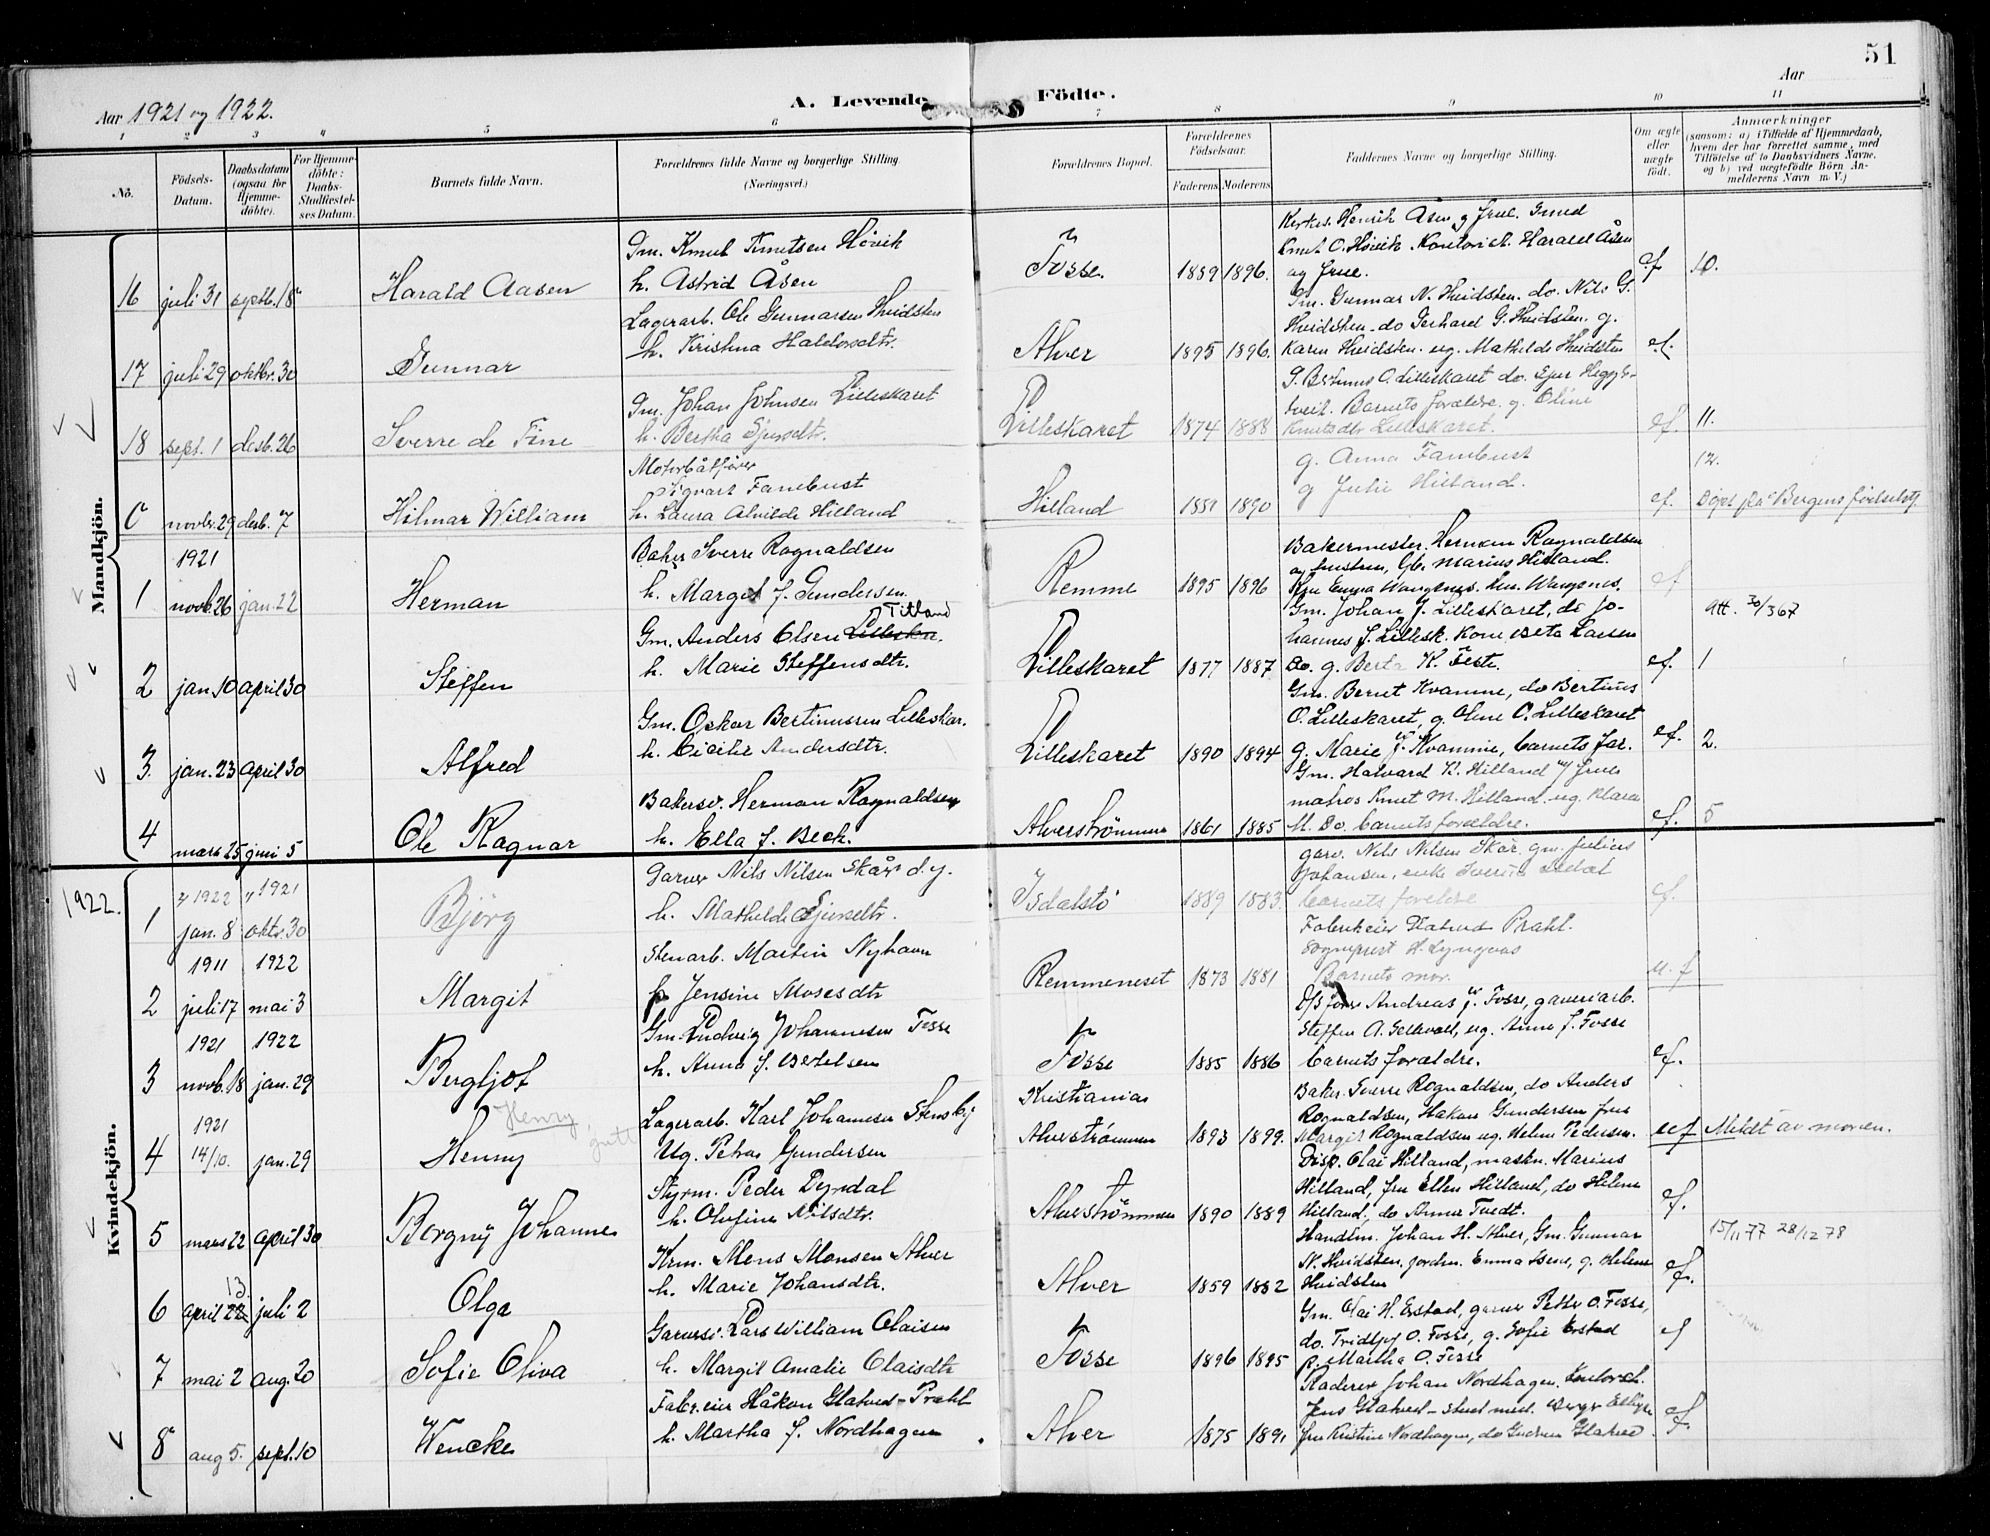 51
Aar 1921 og 1922.
A. Levende Födte.
Aar
1 2 3 4 5 6 7 8 9 10 11
No.
Födsels-Datum.
Daabsdatum (ogsaa for Hjemme-döbte).
For Hjemme-döbte: Daabs-Stadfæstel-ses Datum.
Barnets fulde Navn.
Forældrenes fulde Navne og borgerlige Stilling. (Næringsvei.)
Forældrenes Bopæl.
Forældrenes Födselsaar.
Faderens. Moderens.
Faddernes Navne og borgerlige Stilling.
Om ægte eller uægte födt.
Anmærkninger
(saasom: a) i Tilfælde af Hjemmedaab, hvem der har forrettet samme, med Tilföielse af to Daabsvidners Navne, og b) ved uægtefödte Börn An-melderens Navn m. V.)
Mandkjön.
16 juli 31 septb. 18 Harald Aasen
Gm. Knut Knutsen Hövik
h. Astrid Åsen
Fosse. 1889 1896.
Henrik Åsen og frue. Gmed
Knut O. Hövik. Harald Åsen
og frue.
ef 10.
17 juli 29 oktbr. 30 Gunnar
Lagerarb. Ole Gunnarsen Hvidsten
h. Kristina Haldorsdtr.
Alver 1895 1896.
Gm. Gunnar N. Hvidsten. do. Nils G.
Hvidsten. do Gerhard G. Hvidsten. g.
Karen Hvidsten. ug. Mathilde Hvidsten
ef.
18 sept. 1 desb. 26 Sverre de Fine
Gm. Johan Johnsen Lilleskaret
h. Bertha Sjursdtr.
Lilleskaret 1874 1888
G. Bertinus O. Lilleskaret do. Sjur
Barnets forældre. g. Oline
Knutsdtr Lilleskaret.
ef. 11.
0 novbr. 29 desb. 7 Hilmar William
Motorbåtfører
Sigvart Farebust
h. Laura Alvilde Hilland
Hilland 1890
g. Anna Farebust
g Julie Hilland.
ef. 12.
Döpt på Bergens
1921
1 novb. 26 jan. 22 Herman
Baker Sverre Ragnaldsen
h. Margit J. Gundersen
Remme 1895 1896
Bakermester Herman Ragnaldsen
og hustru, Marius Hilland.
ef
2 jan. 10 april 30 Steffen
Gm. Anders Olsen Titland
h. Marie Steffensdtr.
Lilleskaret 1877 1887
Gm. Johan J. Lilleskaret, do Jo-
hannes J. Lillesk. Kone Beta Larsen
Do. g. Berta K. Feste.
ef. 1
att. 30/3 67
3. jan. 23 april 30 Alfred
Gm. Oskar Bertinussen Lilleskar.
h. Cicilie Andersdtr.
Lilleskaret 1890 1894
Gm. Bernt Kvamme, do Bertinus
O. Lilleskaret, g. Oline O. Lilleskaret
g. Marie J. Kvamme, barnets far.
ef. 2.
4 mars 25 juni 5 Ole Ragnar
Bakersv. Herman Ragnaldsen
h. Ella J. Bech.
Alverströmmen 1861 1885
Gm. Halvard K. Hilland og frue
matros Knut M. Hilland. ug. Klara
M. Do. barnets forældre.
ef. 5
Kvindekjön.
1922. 1922 1921
1 jan. 8 oktr. 30 Björg
Garver Nils Nilsen Skår d.y.
h. Mathilde Sjursdtr.
Isdalstö 1889 1883.
garv. Nils Nilsen Skår. gm. Julius
Johansen, enke
barnets foreldre
ef.
1911 1922
2 juli 17 mai 3 Margit
Stenarb. Martin Nyhavn
Jensine Mosesdtr
Remmeneset 1873 1881
Fabrikeier Glatved Prahl.
Sogneprest H. Lyngvær
Barnets mor.
u.f
1921 1922
3 novb. 18 jan. 29 Bergljot
Gm. Ludvig Johannesen Fosse
h. Anna J. Bertelsen
Fosse 1885 1886
Andreas J. Fosse, garveriarb.
Steffen A. ug. Anne J. Fosse
barnets forældre.
ef.
1921
4 14/10. jan. 29 Henny
Henry gutt
Lagerarb. Karl Johannesen Stensby
Ug. Petra Gundersen
Kristiania
Alverströmmen 1893 1899.
Baker Sverre Rognaldsen, do Anders
Rognaldsen, Hakon Gundersen fru
Margit Rognaldsen ug. Helene Pedersen.
uef Meldt av moren.
5 mars 22 april 30 Borgny Johanne
Styrm. Peder Dyrdal
h. Olufine Nilsdtr.
Alverströmmen 1890 1889
Disp. Olai Hilland, maskn. Marius
Hilland, fru Ellen Hilland, do Helene
Hilland, do Anna Tvedt.
ef.
15/11 77 28/12 78
6 april 22 13 juli 2 Olga
Krm. Mons Monsen Alver
h. Marie Johansdtr.
Alver 1859 1882
Handlm. Johan H. Alver, Gm. Gunnar
N. Hvidsten, jordm. Emma Isene, g. Helene
Hvidsten
ef.
7 mai 2 aug. 20 Sofie Oliva
Garversv. Lars William Olaisen
h. Margit Amalie Olaisdtr
Fosse 1896 1895
Gm. Olai H. Erstad, garver Petter O. Fosse,
do. Fridtjof O. Fosse, g. Sofie Erstad
p. Martha O. Fosse
ef
8 aug 5. sept. 10 Wencke
Fabr.eier Håkon Glatved-Prahl
h. Martha J. Nordhagen
Alver 1875 1891
Johan Nordhagen.
Jens Glatved - stud med.
fru Kristine Nordhagen, do Gudrun Glatved
ef.